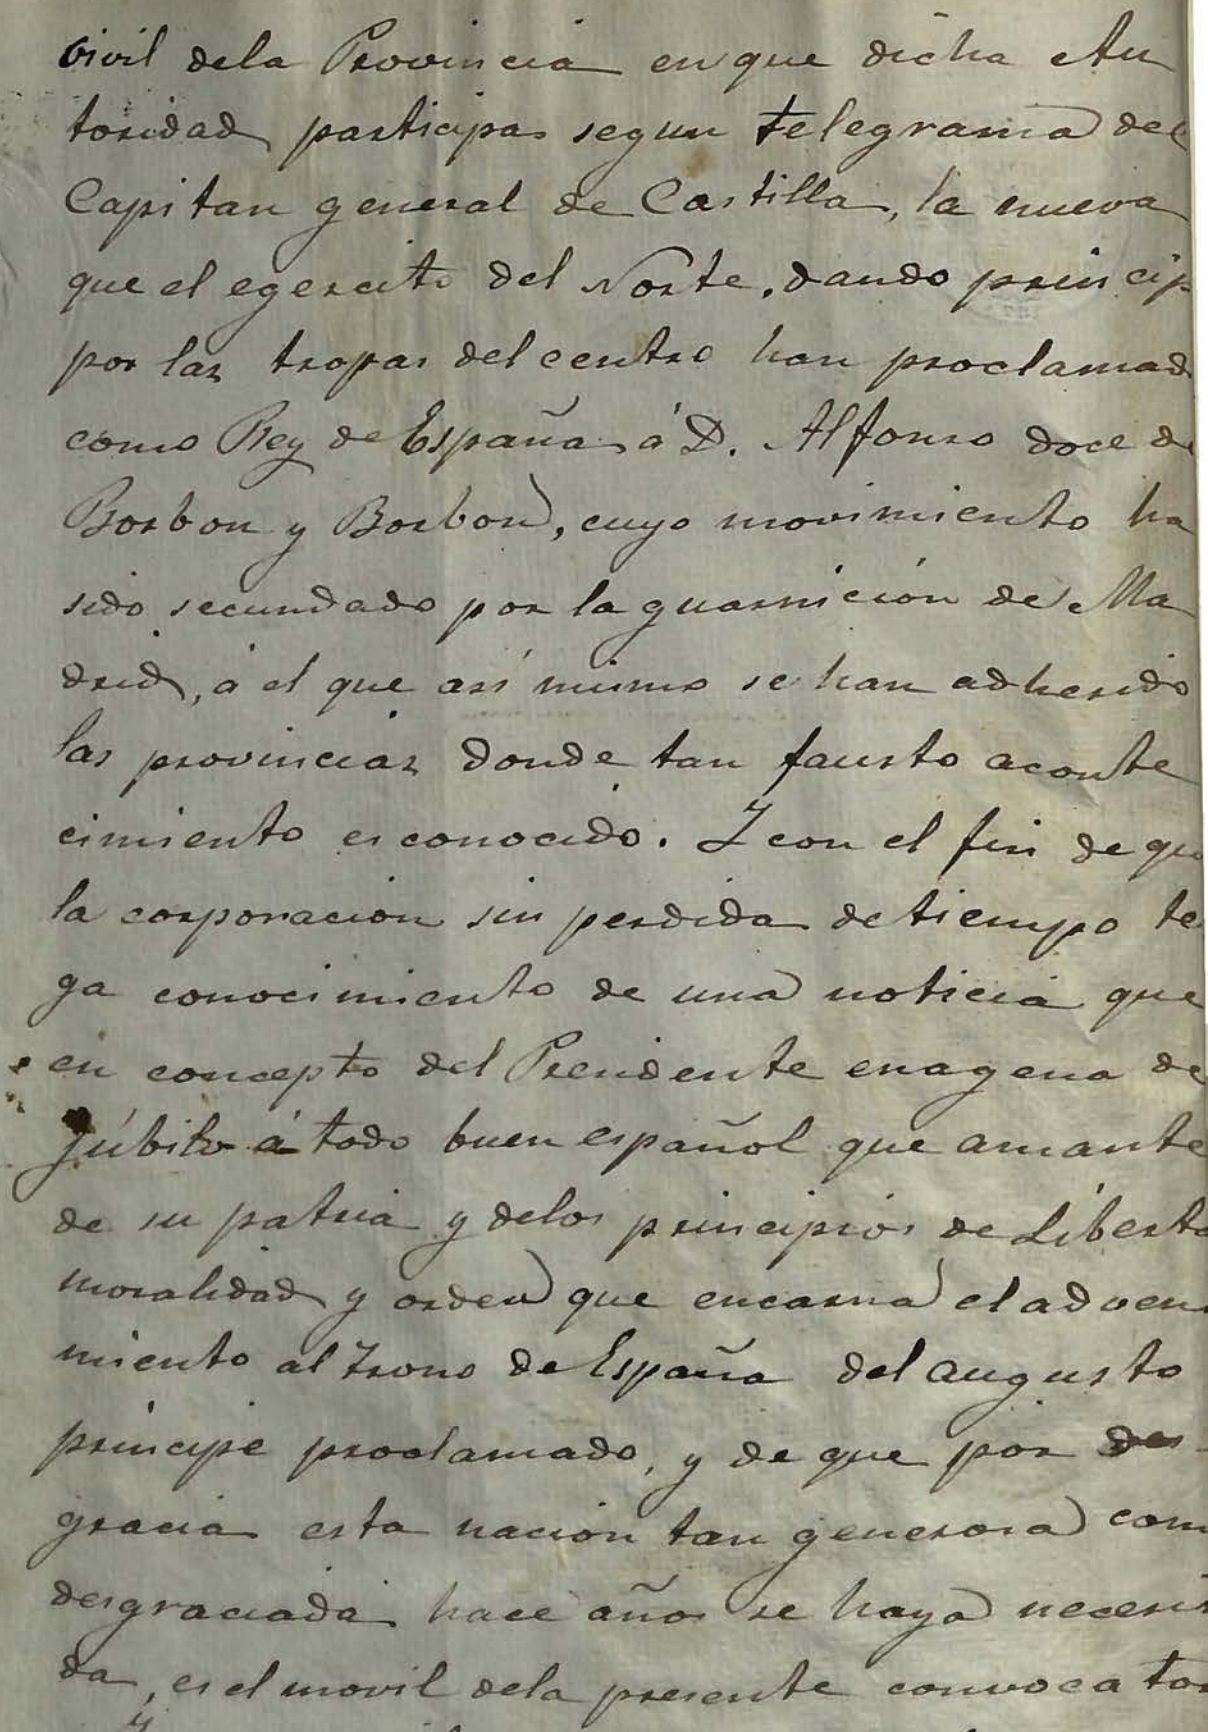 Civil dela Provincia en que dicha Au
toridad participa segun telegrama del
Capitan general de Castilla, la nueva
que el egercito del Norte, dando princip
por las tropas del centro han proclamad
como Rey de España á D. Alfonso doce de
Borbon y Borbon, cuyo movimiento ha
sido secundado por la guarnición de Ma
drid, á el que así mismo se han adherido
las provincias donde tan fausto aconte
cimiento es conocido. Y con el fin de que
la corporacion sin perdida de tiempo te
ga conocimiento de una noticia que
en concepto del Presidente enagena de
júbilo á todo buen español que amante
de su patria y delos principios de Liberta
moralidad y orden que encarna el adveni
miento al trono de España del augusto
príncipe proclamado, y de que por des-
gracia esta nación tan generosa com
desgraciada hace años se haya necesi
da, es el movil dela presente convocator